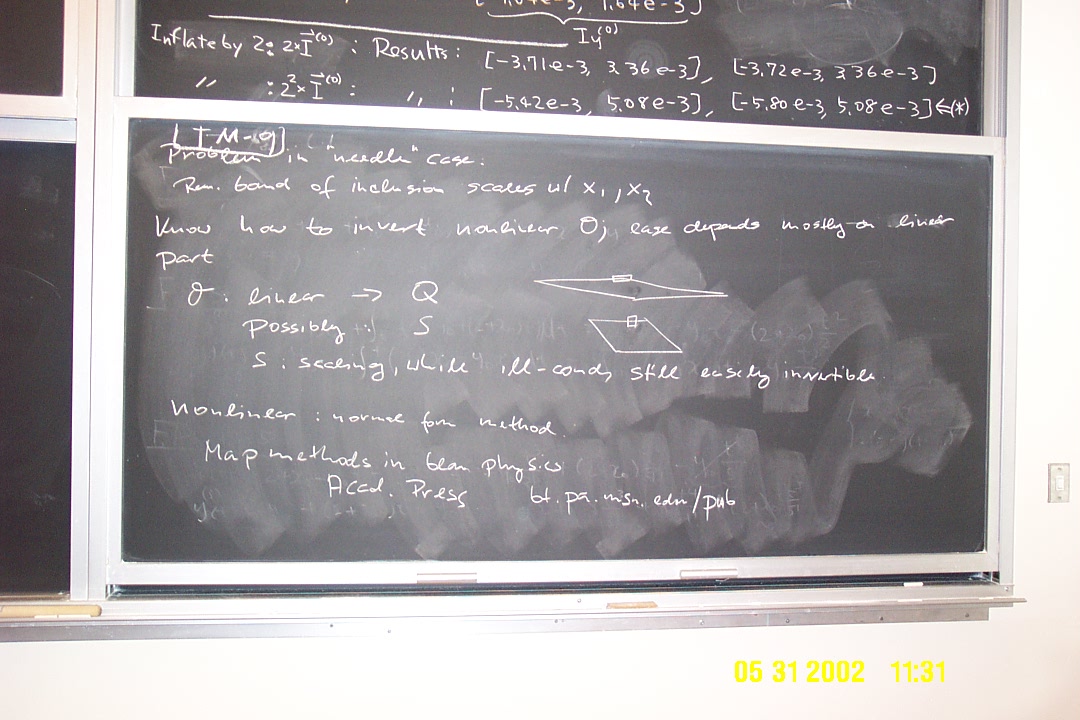 [ 1.64e-3, 1.64e-3]
I₄⁽⁰⁾
Inflate by 2: 2×I⃗⁽⁰⁾ : Results: [-3.71e-3, 3.36e-3], [-3.72e-3, 3.36e-3]
〃 : 2²×I⃗⁽⁰⁾ : 〃 : [-5.42e-3, 5.08e-3], [-5.80e-3, 5.08e-3] ⇐(*)
Problem in "needle" case.
Rem. band of inclusion scales w/ x₁, x₂
Know how to invert nonlinear O; ease depends mostly on linear
part
O: linear -> Q
possibly S
S: scaling, while "ill-cond, still easily invertible.
Nonlinear: normal form method.
Map methods in beam physics
Acad. Press bt.pa.msu.edu/pub
05 31 2002 11:31